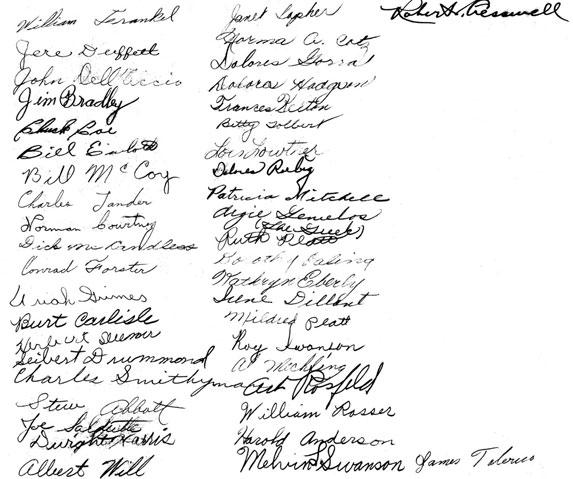 William Frankel
Jere Duffett
John Dell'Ciccio
Jim Bradley
Chuck Coe
Bill
Bill McCoy
Charles Tander
Norman Courtney
Dick Mc Andless
Conrad Forster
Uriah Grimes
Burt Carlisle
Herbert
Seibert Drummond
Charles Smithyman
Stew Abbott
Joe
Dwight Harris
Albert Will
Janet Topher
Norma A. Cotz
Dolores
Dolores Hudgson
Frances
Betty Tolbert
Lois Lowther
Dolores Ruby
Patricia Mitchell
Argie
Ruth Platt
Dorothy Ealing
Kathryn Eberly
Irene Dillont
Mildred Pratt
Roy Swanson
Al Mechling
Art Rosfeld
William Rosser
Harold Anderson
Melvin L Swanson
James
Robert W. Cresswell